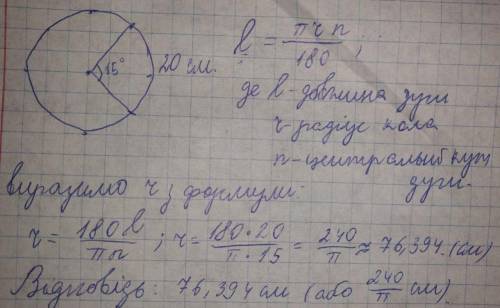 15°
20 см.
l = πrn / 180 ;
де l - довжина дуги
r - радіус кола
n - центральний кут
дуги.
виразимо r з формули:
r = 180 l / πn ; r = 180 • 20 / π • 15 = 240 / π ≈ 76,394 (см)
Відповідь: 76,394 см (або 240/π см).